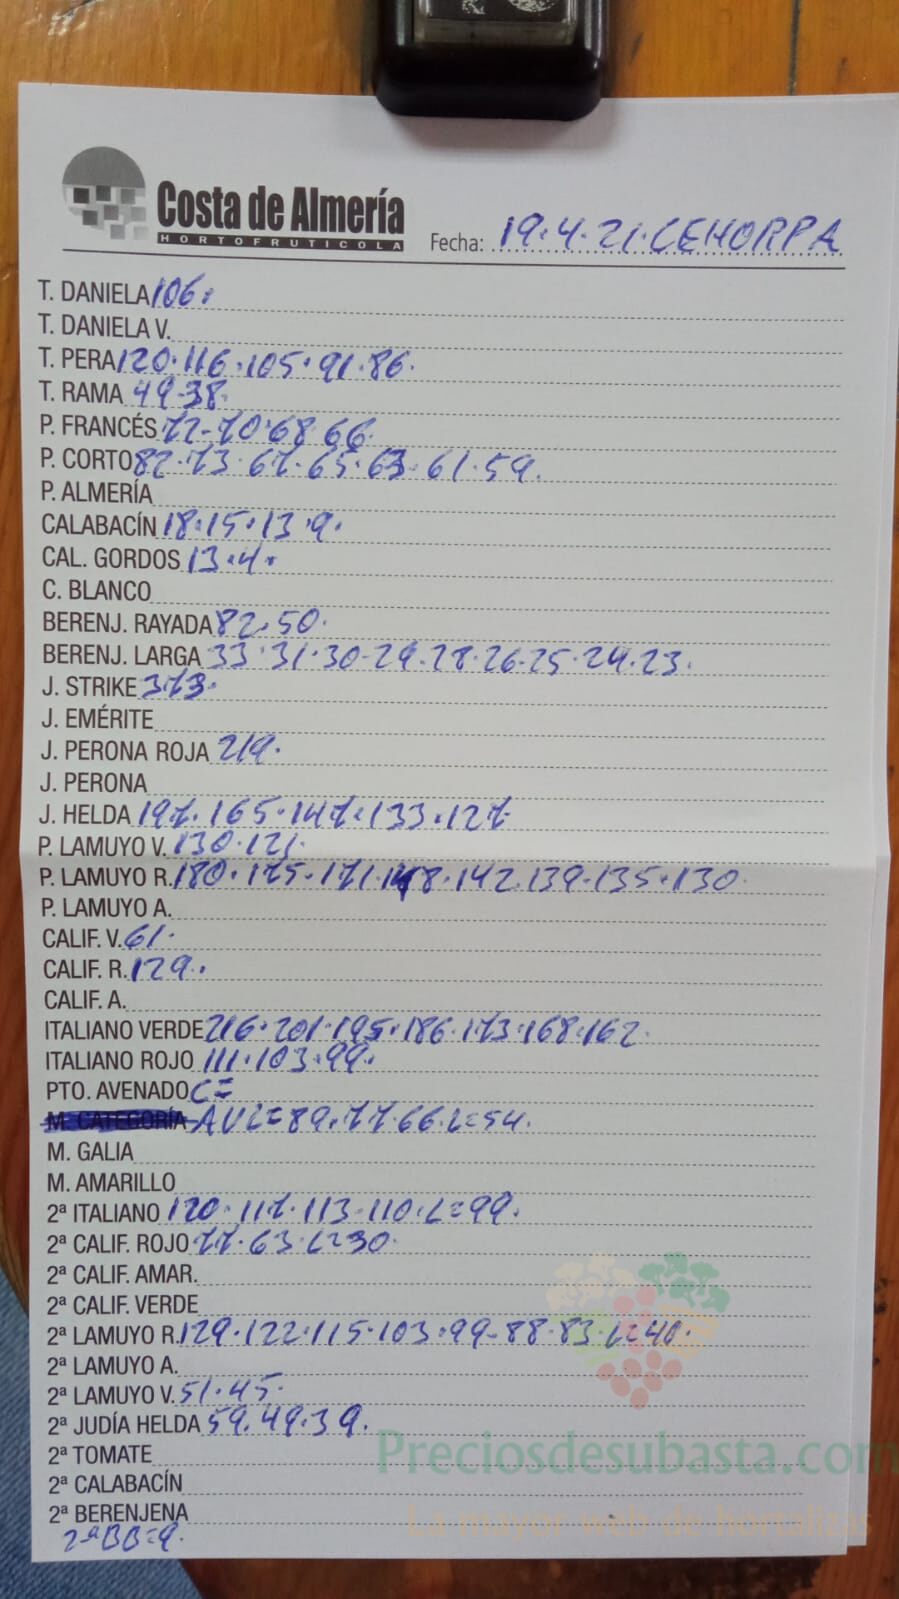 Costa de Almería
HORTOFRUTICOLA
Fecha: 19.4.21.CEHORPA
T. DANIELA 106.
T. DANIELA V.
T. PERA 120.116.105.91.86.
T. RAMA 49-38.
P. FRANCÉS 72-70.68.66.
P. CORTO 82.73.67.65.63.61.59.
P. ALMERÍA
CALABACÍN 18.15.13.9.
CAL. GORDOS 13.4.
C. BLANCO
BERENJ. RAYADA 82.50.
BERENJ. LARGA 33.31.30-29.28.26-25.24.23.
J. STRIKE 373.
J. EMÉRITE
J. PERONA ROJA 219.
J. PERONA
J. HELDA 197.165.147.133.127
P. LAMUYO V. 130.121.
P. LAMUYO R. 180.175.171.148.142.139-135.130.
P. LAMUYO A.
CALIF. V. 61.
CALIF. R. 129.
CALIF. A.
ITALIANO VERDE 216.201.195.186.173.168.162.
ITALIANO ROJO 111.103.99.
PTO. AVENADO C=
M. CATEGORÍA AVL=89.77.66.L=54.
M. GALIA
M. AMARILLO
2ª ITALIANO 120.117.113-110.L=99.
2ª CALIF. ROJO 77.63.L=30.
2ª CALIF. AMAR.
2ª CALIF. VERDE
2ª LAMUYO R. 129.122.115.103.99-88.83.L=40.
2ª LAMUYO A.
2ª LAMUYO V. 51.45.
2ª JUDÍA HELDA 59.49.39.
2ª TOMATE
2ª CALABACÍN
2ª BERENJENA
2ªBB=9.
Preciosdesubasta.com
La mayor web de hortalizas